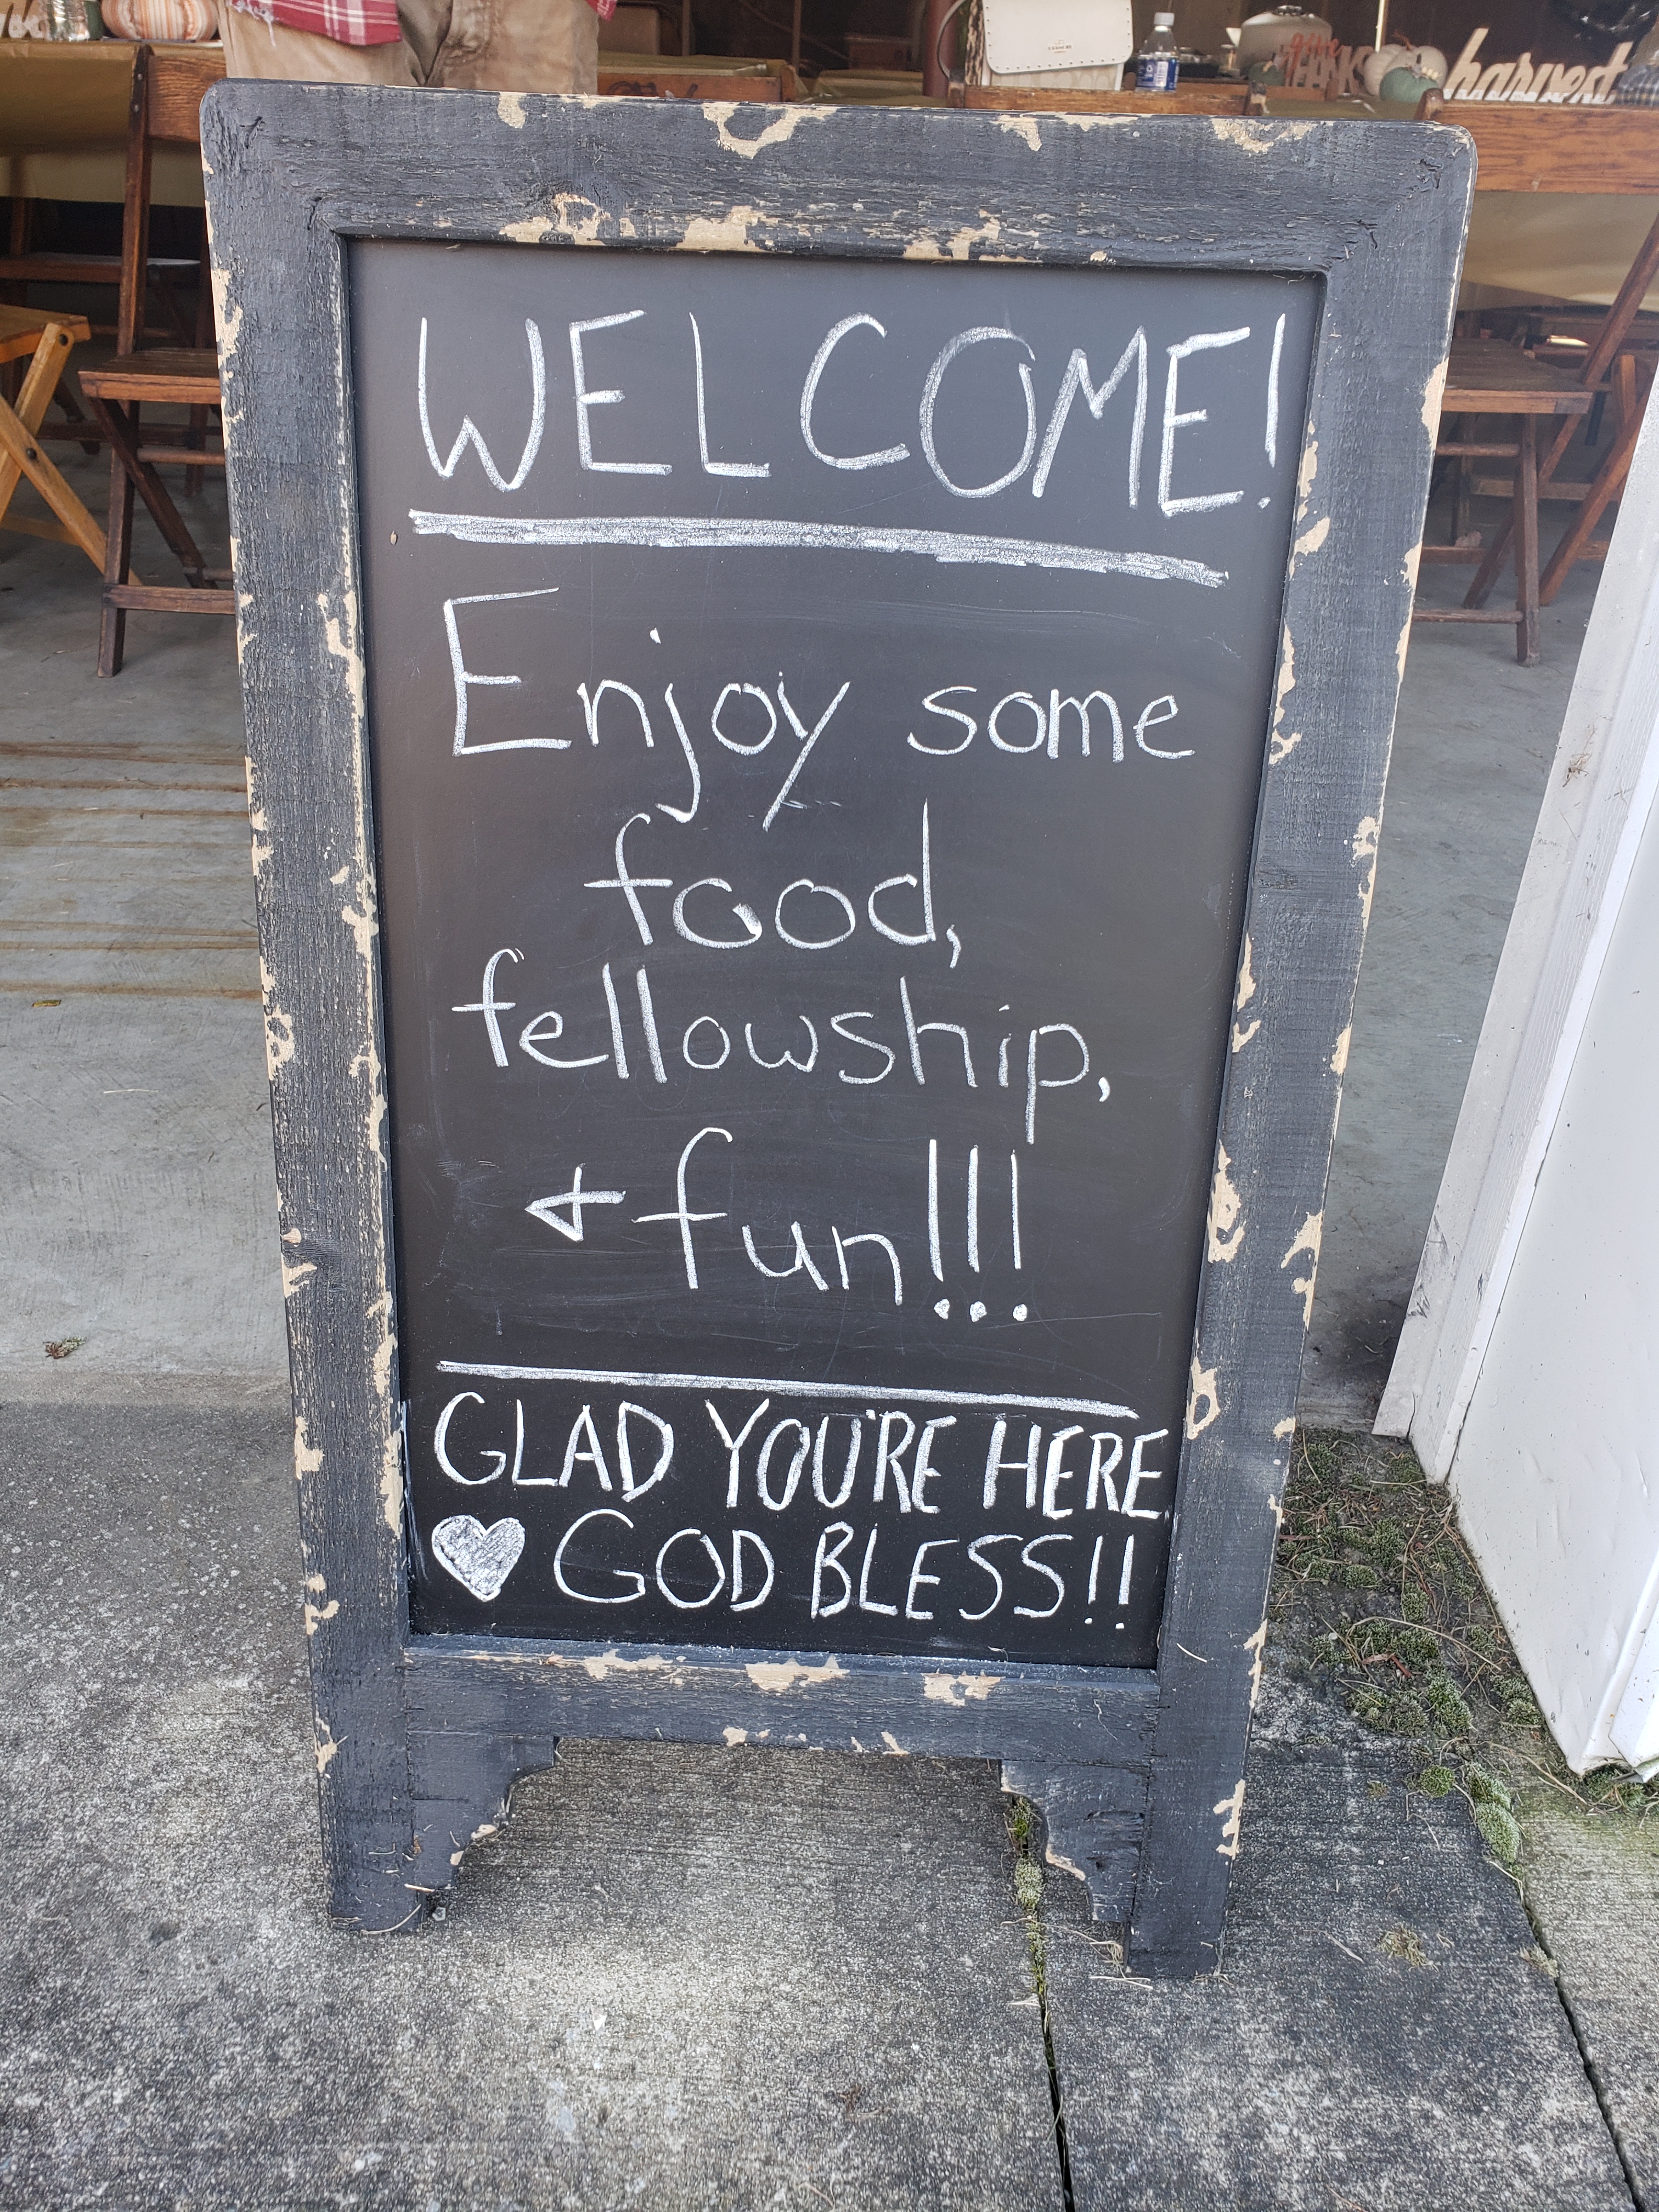 harvest
WELCOME!
Enjoy some
food,
fellowship,
& fun!!!
GLAD YOU'RE HERE
♥ GOD BLESS!!